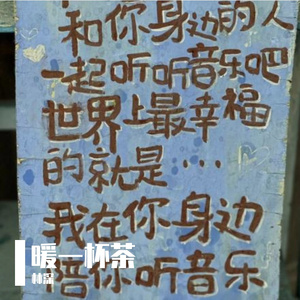 和你身边的人
一起听听音乐吧
世界上最幸福
的就是…
我在你身边
陪你听音乐
暖一杯茶